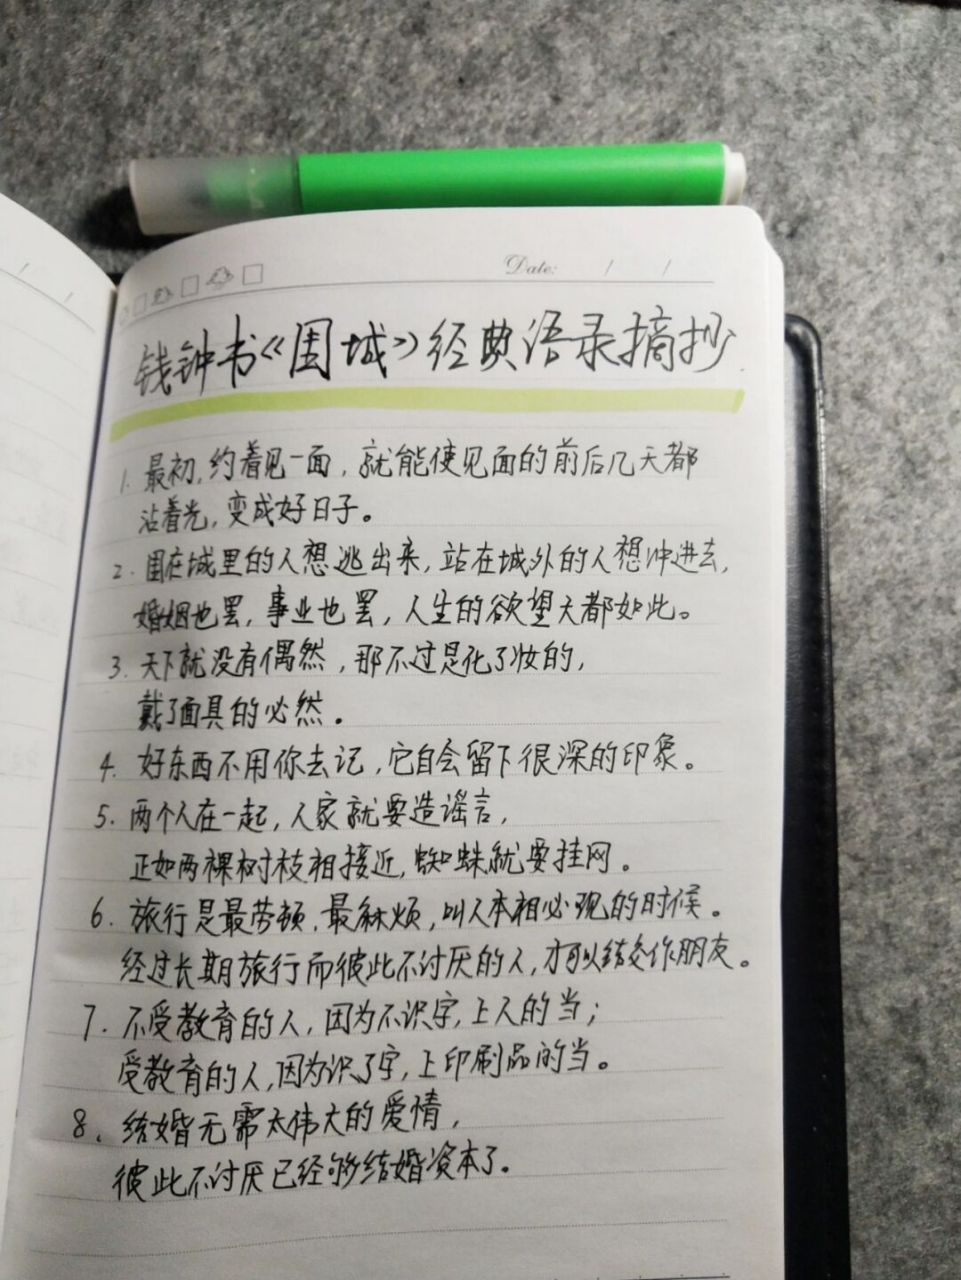 Date: / /
钱钟书《围城》经典语录摘抄
1. 最初,约着见一面,就能使见面的前后几天都
沾着光,变成好日子。
2. 围在城里的人想逃出来,站在城外的人想冲进去,
婚姻也罢,事业也罢,人生的欲望大都如此。
3. 天下就没有偶然,那不过是化了妆的,
戴了面具的必然。
4. 好东西不用你去记,它自会留下很深的印象。
5. 两个人在一起,人家就要造谣言,
正如两棵树枝相接近,蜘蛛就要挂网。
6. 旅行是最劳顿,最麻烦,叫人本相必现的时候。
经过长期旅行而彼此不讨厌的人,才可以结交作朋友。
7. 不受教育的人,因为不识字,上人的当;
受教育的人,因为识了字,上印刷品的当。
8. 结婚无需太伟大的爱情,
彼此不讨厌已经够结婚资本了。